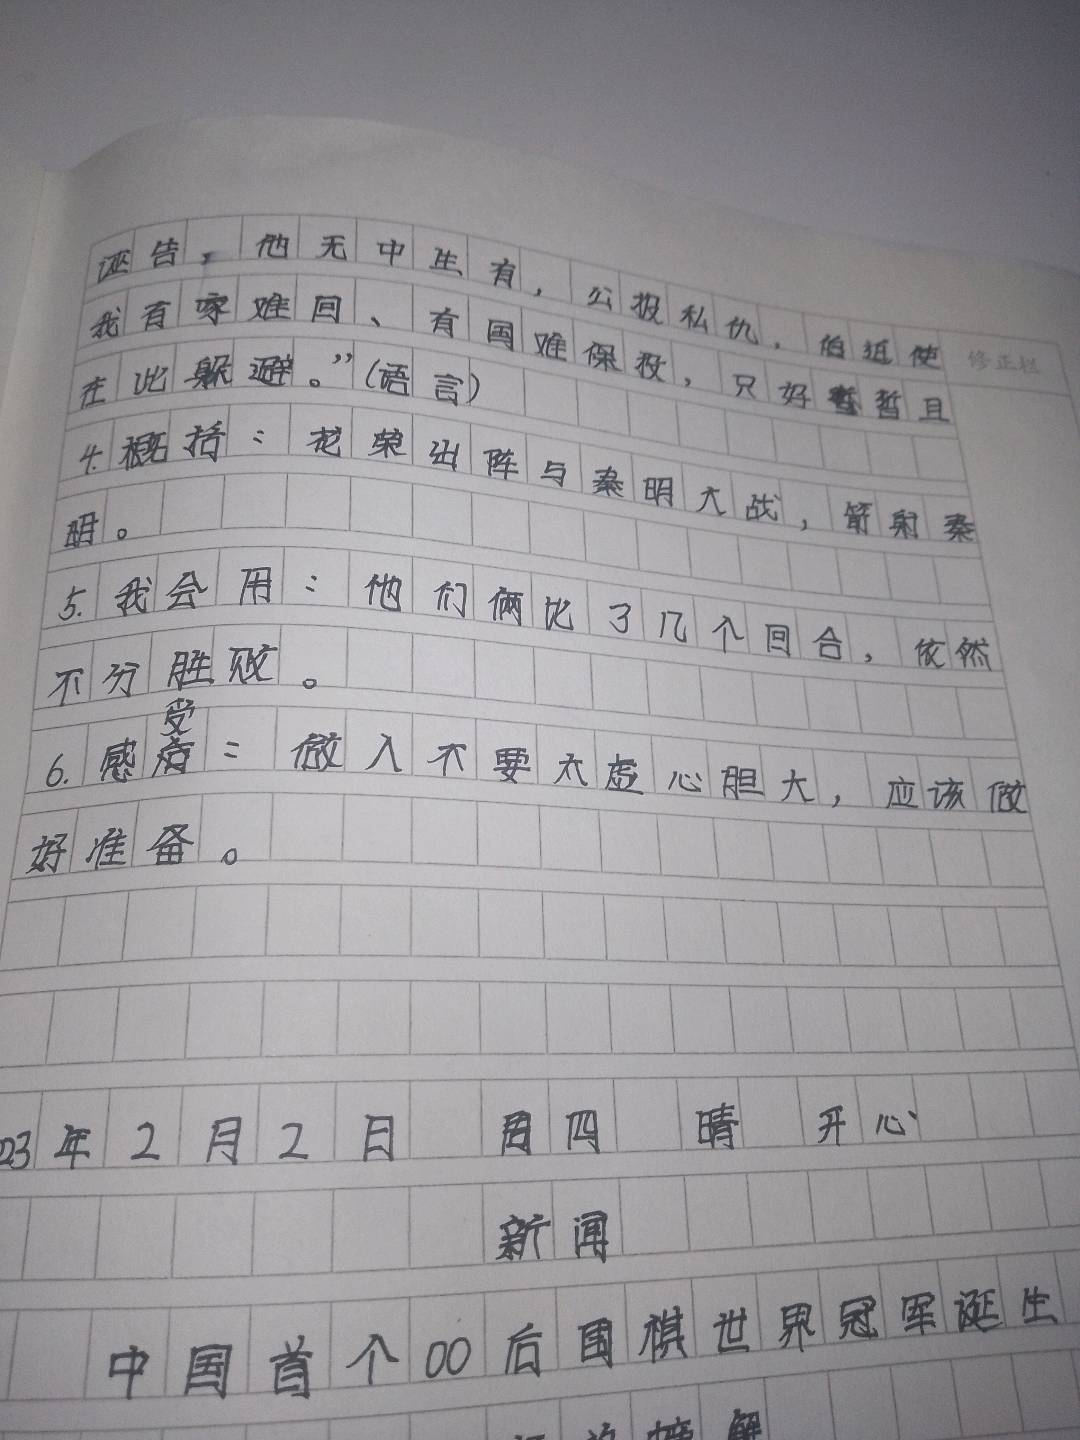 诬告，他无中生有，公报私仇，迫使
修正栏
我有家难回、有国难保投，只好暂且
在此躲避。”(语言)
4.概括：花荣出阵与秦明大战，箭射秦
明。
5.我会用：他们俩比了几个回合，依然
不分胜败。
受
6.感：做人不要太虚心胆大，应该做
好准备。
23年2月2日 周四 晴 开心
新闻
中国首个00后围棋世界冠军诞生